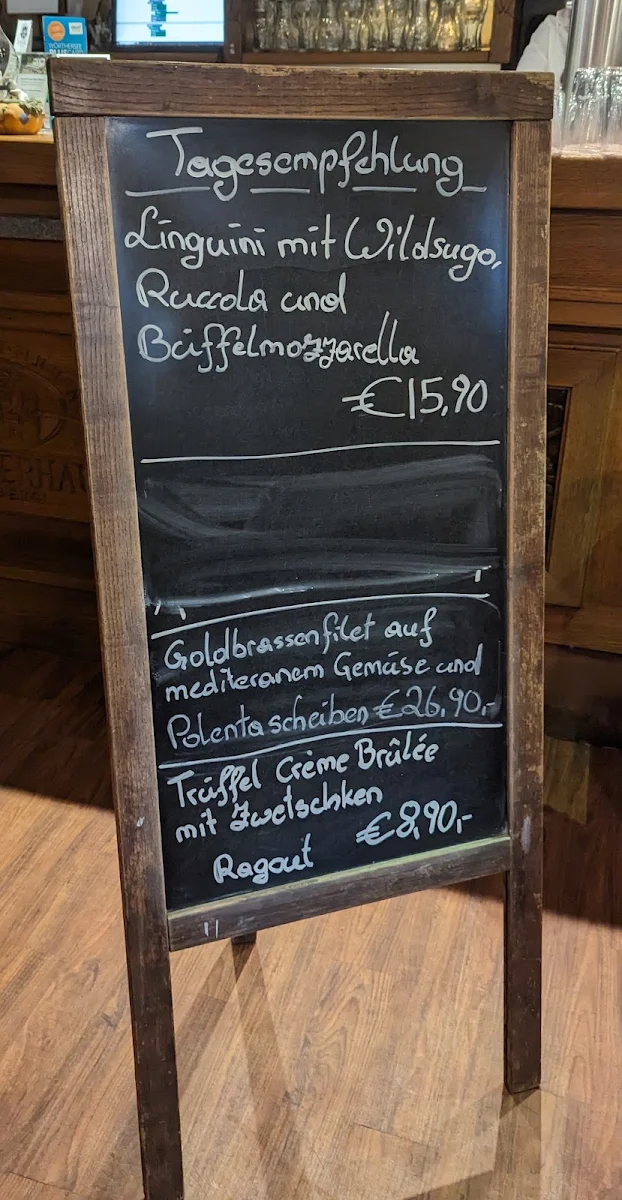 WÖRTHERSEE
Tagesempfehlung
Linguini mit Wildsugo,
Ruccola und
Büffelmozzarella
€15,90
Goldbrassenfilet auf
mediteranem Gemüse und
Polentascheiben €26,90,-
Trüffel Crème Brûlée
mit Zwetschken
Ragout €8,90,-